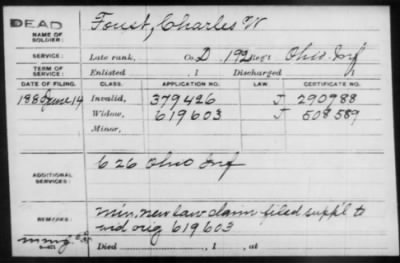 DEAD
NAME OF SOLDIER: Foust, Charles W
SERVICE: Late rank, Co. D, 192 Reg't Ohio Inf
TERM OF SERVICE: Enlisted , 1 Discharged , 1
DATE OF FILING. CLASS. APPLICATION NO. LAW. CERTIFICATE NO.
1880 June 14 Invalid, 379426 J 290988
Widow, 619603 J 508589
Minor,
ADDITIONAL SERVICES: C 26 Ohio Inf
REMARKS: Min. new law claim filed suppl to
wid orig 619603
Died , 1 , at